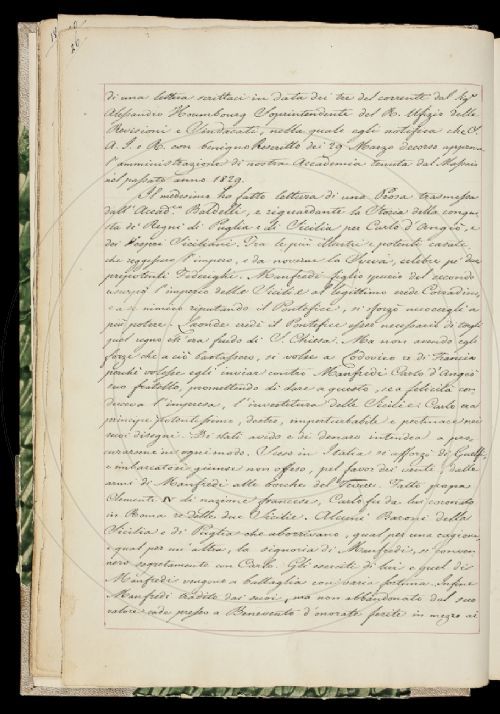 di una lettera scrittaci in data dei tre del corrente dal Sigr
Alessandro Hombourg Soprintendente del R. Ufizio delle
Revisioni e Sindacati, nella quale egli notifica che S.
A. I. e R. con benigno Rescritto dei 29 Marzo decorso approva
l'amministrazione di nostra Accademia tenuta dal Massaio
nel passato anno 1829.
Il medesimo ha fatto lettura di una Prosa trasmessa
dall'Accad.co Baldelli, e riguardante la Storia della conqui-
sta de' Regni di Puglia e di Sicilia per Carlo d'Angiò, e
dei Vespri Siciliani. Tra le più illustri e potenti casate
che reggessero l'impero, è da noverar la Sveva, celebre pe' due
prepotenti Federighi. Manfredi figlio spurio del secondo
usurpò l'imperio delle Sicilie al legittimo erede Corradino,
e a se nemico reputando il Pontefice, si sforzò nuocergli a
più potere. Laonde credè il Pontefice esser necessario di torgli
quel regno che era feudo di S. Chiesa. Ma non avendo egli
forze che a ciò bastassero, si volse a Lodovico re di Francia
perchè volesse egli inviar contro Manfredi Carlo d'Angiò
suo fratello, promettendo di dare a questo, se a felicità con-
duceva l'impresa, l'investitura delle Sicilie. Carlo era
principe potentissimo, destro, imperturbabile e pertinace nei
suoi disegni. Di stati avido e di denaro intendea a pro-
curarsene in ogni modo. Sceso in Italia si afforzò di Guelfi
e imbarcatosi giunse non offeso, pel favor dei venti, dalle
armi di Manfredi alle bocche del Tevere. Fatto papa
Clemente IV di nazione francese, Carlo fu da lui coronato
in Roma re delle due Sicilie. Alcuni Baroni della
Sicilia e di Puglia che aborrivano, qual per una cagione,
e qual per un'altra, la signoria di Manfredi, si conven-
nero segretamente con Carlo. Gli eserciti di lui e quel di
Manfredi vengono a battaglia con varia fortuna. Infine
Manfredi tradito dai suoi, ma non abbandonato dal suo
valore cade presso a Benevento d'onorate ferite in mezzo ai